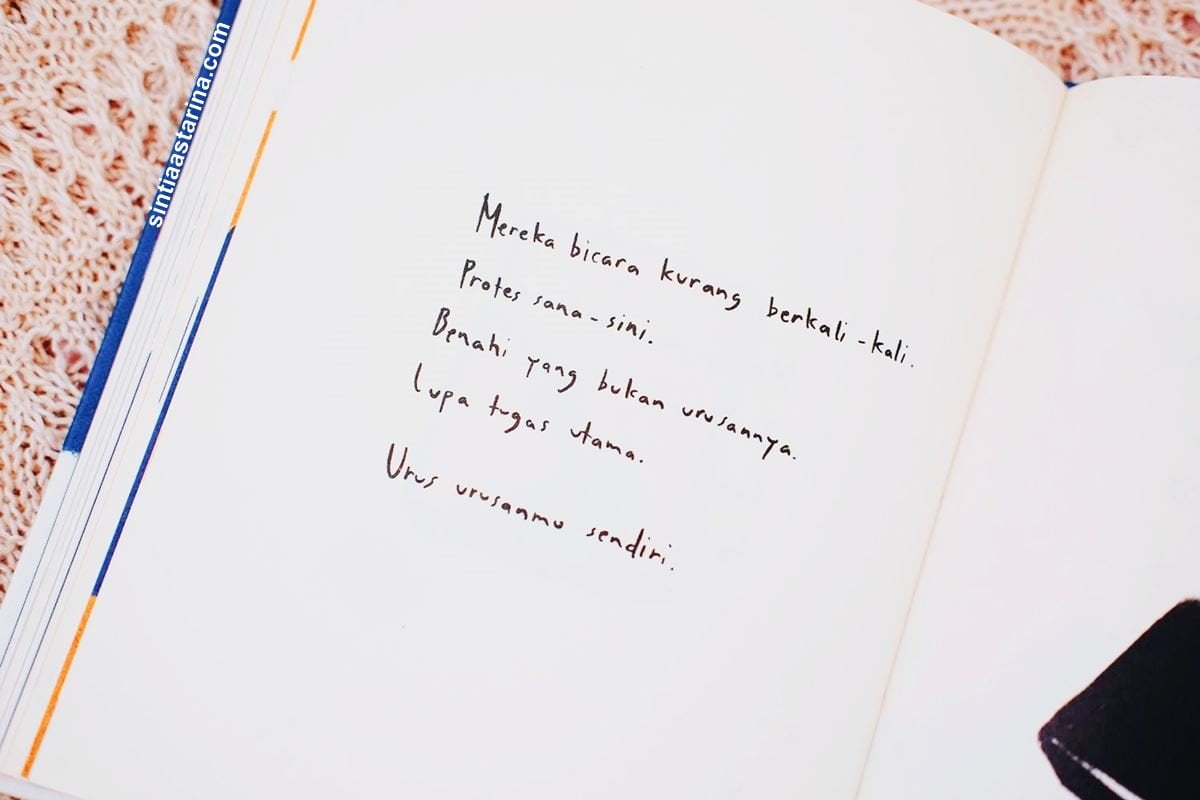 sintiaastarina.com
Mereka bicara kurang berkali-kali.
Protes sana-sini.
Benahi yang bukan urusannya.
lupa tugas utama.
Urus urusanmu sendiri.